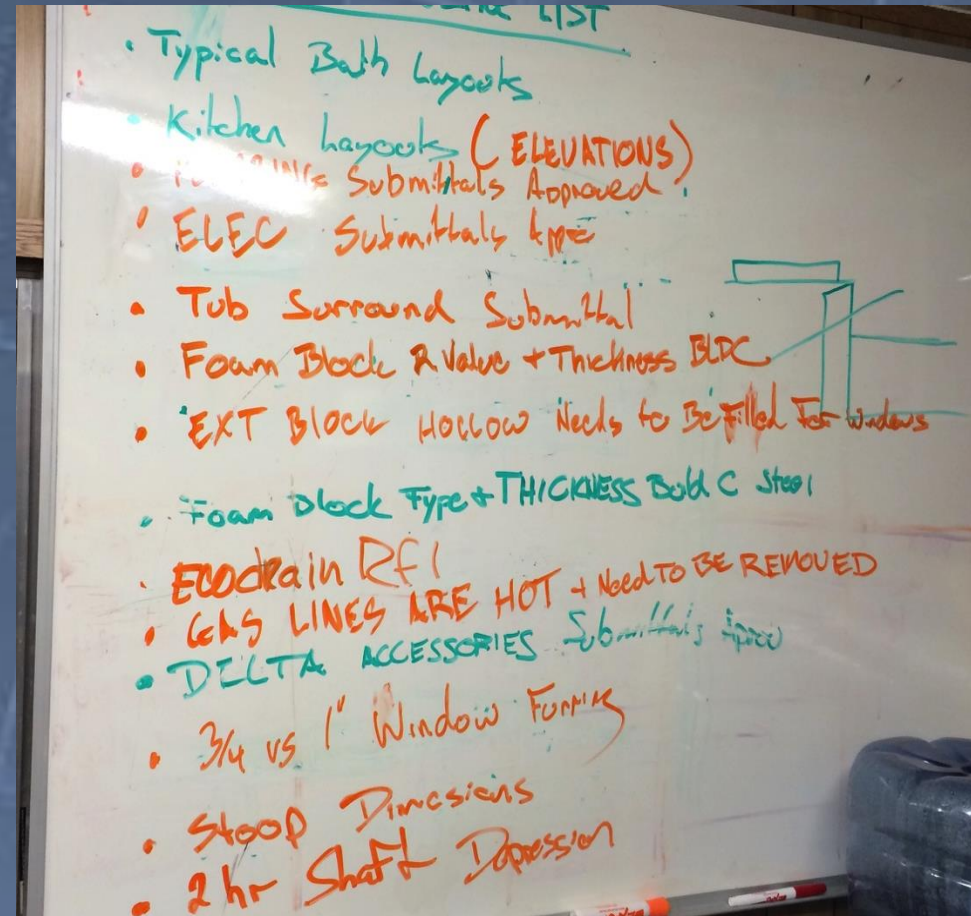 LIST
• Typical Bath Layouts
• Kitchen Layouts (ELEVATIONS)
• Submittals Approved
• ELEC Submittals App
• Tub Surround Submittal
• Foam Block R Value + Thickness BLDC
• EXT Block HOLLOW Needs to Be Filled For Windows
• Foam Block Type + THICKNESS Bold C Steel
• ECODRain RFI
• GAS LINES ARE HOT + Need TO BE REMOVED
• DELTA ACCESSORIES Submittals
• 3/4 vs 1" Window Furring
• Stoop Dimesions
• 2 hr Shaft Depression